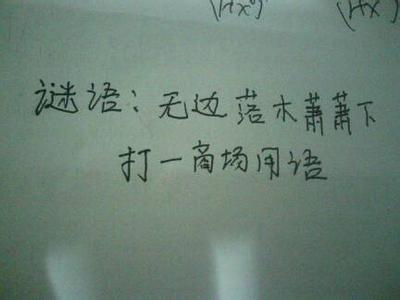 (1+x⁰)
(1+x)
谜语：无边落木萧萧下
打一商场用语